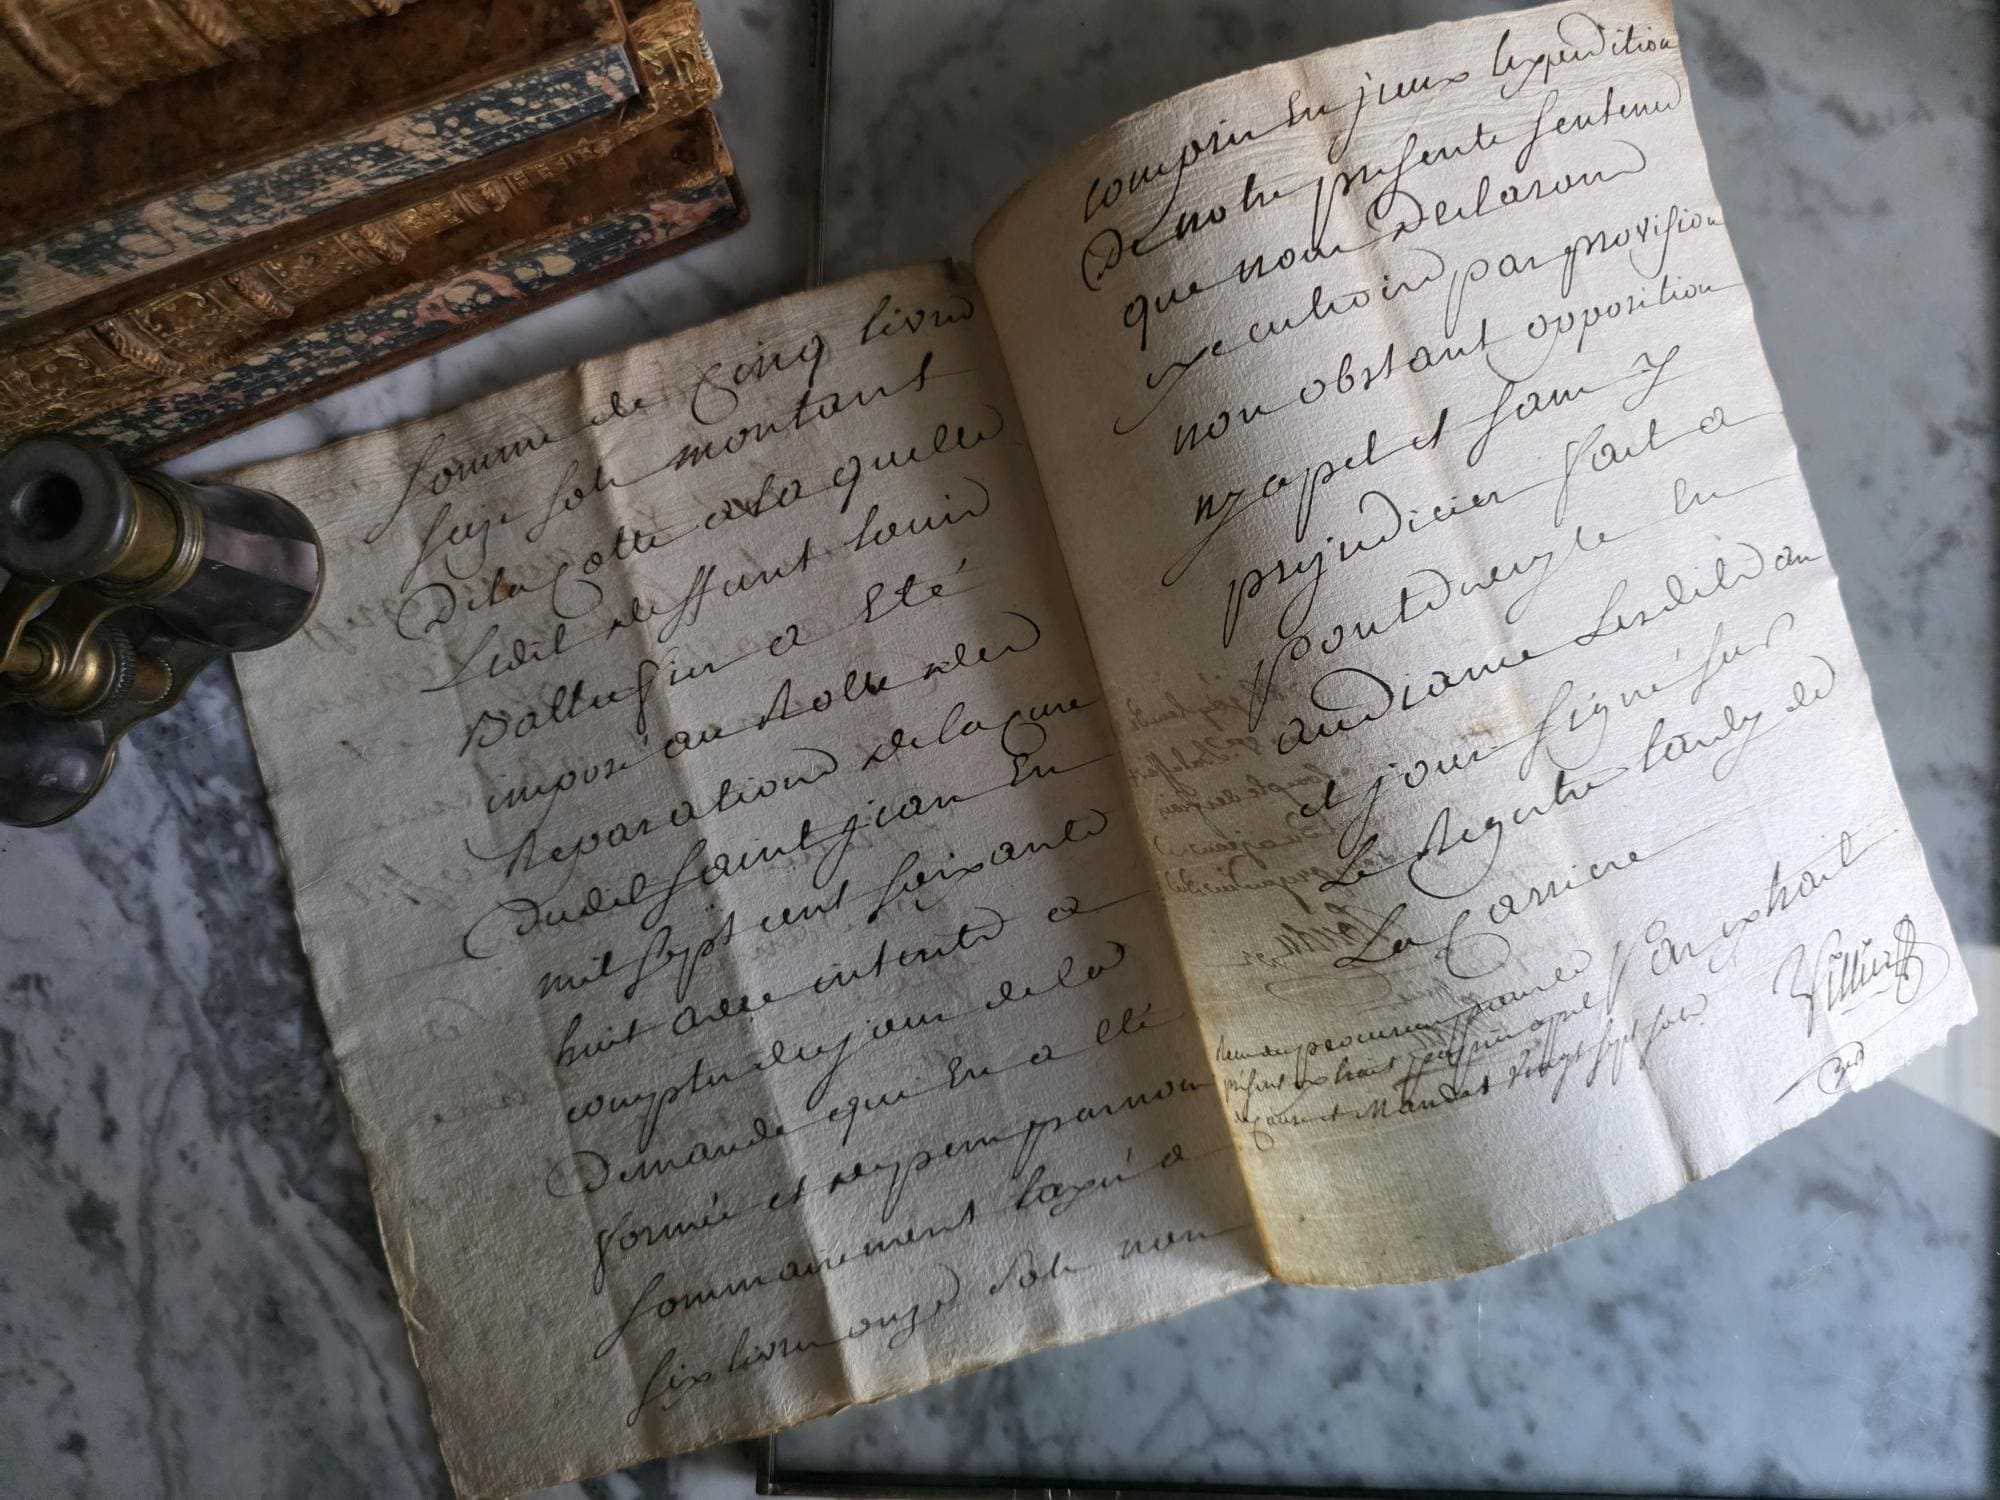 somme de Cinq livres
seize sols montant
De la Cotte a la quelle
Ledit deffunt Louis
a Eté
imposé au Rolle des
Reparations de la Cure
Dudit Saint jean En
mil sept cent soixante
huit avec interets a
compter du jour de la
Demande qui En a eté
formée et depens par nous
sommairement taxés a
six livres onze sols non
compris En jceux lexpedition
De notre presente sentence
que nous Declarons
executoire par provision
non obstant opposition
ny apel et sans y
prejudicier fait a
En
audiance Lesdits an
et jour signé sur
Le Registre tardy de
La Carriere
Par extrait
present extrait
vingt sept sols